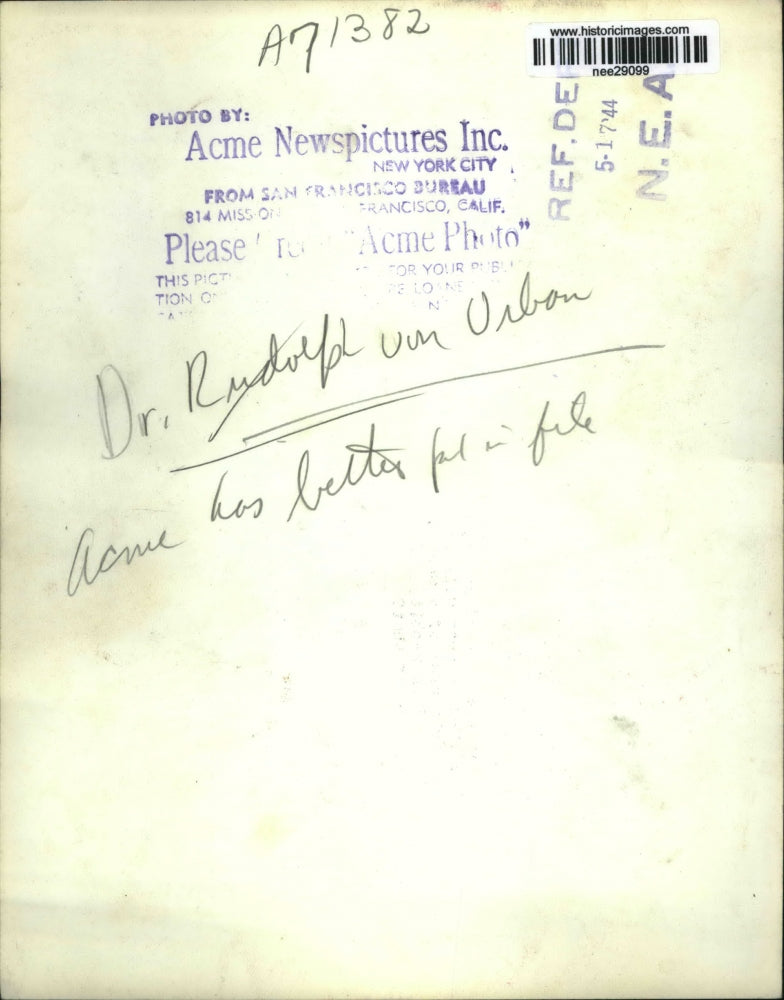 A71382
www.historicimages.com
nee29099
PHOTO BY:
Acme Newspictures Inc.
NEW YORK CITY
FROM SAN FRANCISCO BUREAU
814 MISSION FRANCISCO, CALIF.
Please "Acme Photo"
THIS PICT
FOR YOUR PUBLI
TION
REF. DE
5-17'44
N.E.A
Dr. Rudolph von Urban
Acme has better in file